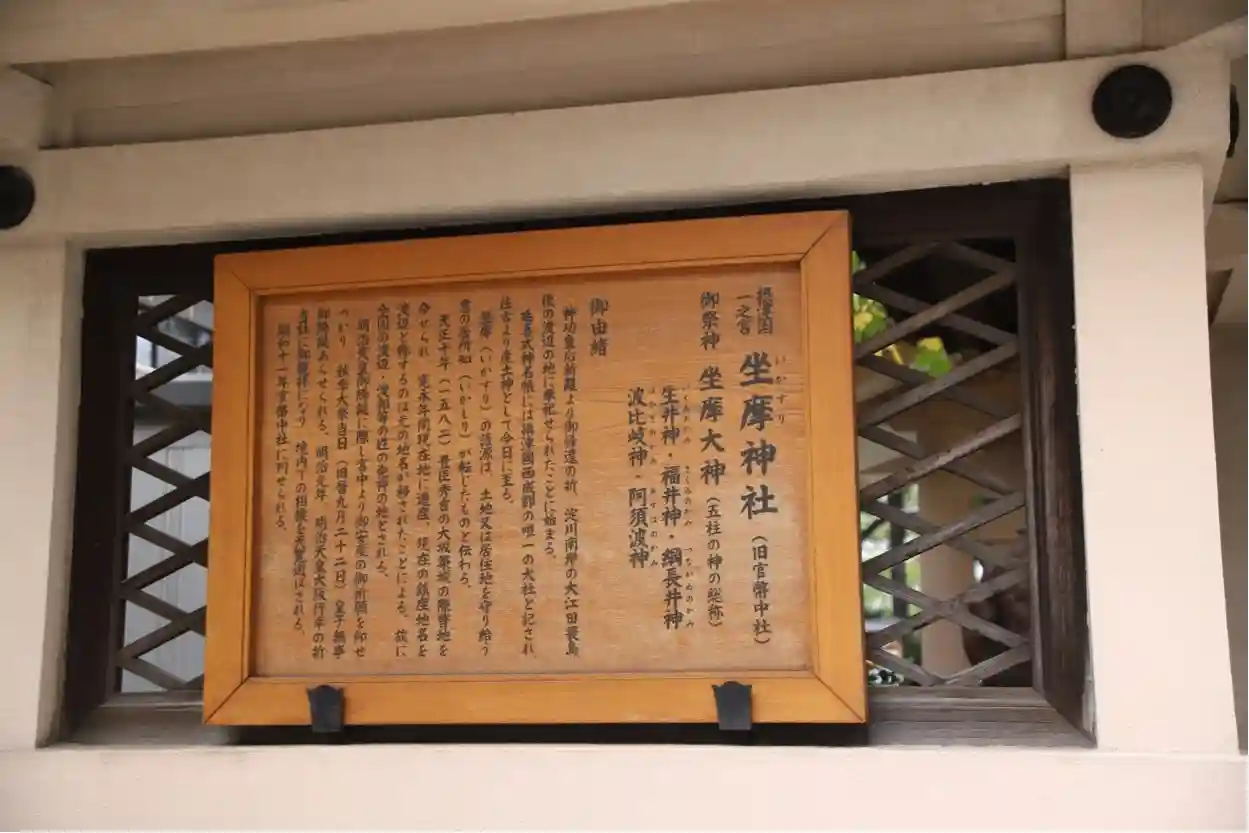 摂津国
一之宮
いかすり
坐摩神社（旧官幣中社）
御祭神 坐摩大神（五柱の神の総称）
生井神・福井神・綱長井神
波比岐神・阿須波神
御由緒
神功皇后新羅より御帰還の折、淀川南岸の大江田蓑島
後の渡辺の地に奉祀せられたことに始まる。
延喜式神名帳には摂津國西成郡の唯一の大社と記され、
往古より産土神として今日に至る。
坐摩（いかすり）の語源は、土地又は居住地を守り給う
意の居所知（いかしり）が転じたものと伝わる。
天正十年（一五八二）豊臣秀吉の大坂築城の際替地を
命せられ 寛永年間現在地に遷座、現在の鎮座地名を
渡辺と称するのは元の地名が移されたことによる。故に
全国の渡辺・渡部等の姓の発祥の地とされる。
明治天皇御降誕に際し宮中より御安産の御祈願を仰せ
つかり、秋季大祭当日（旧暦九月二十二日）皇子無事
御降誕あらせられる。明治元年 明治天皇大阪行幸の折
当社に御親拝になり 境内での相撲を天覧遊ばされる。
昭和十一年官幣中社に列せられる。